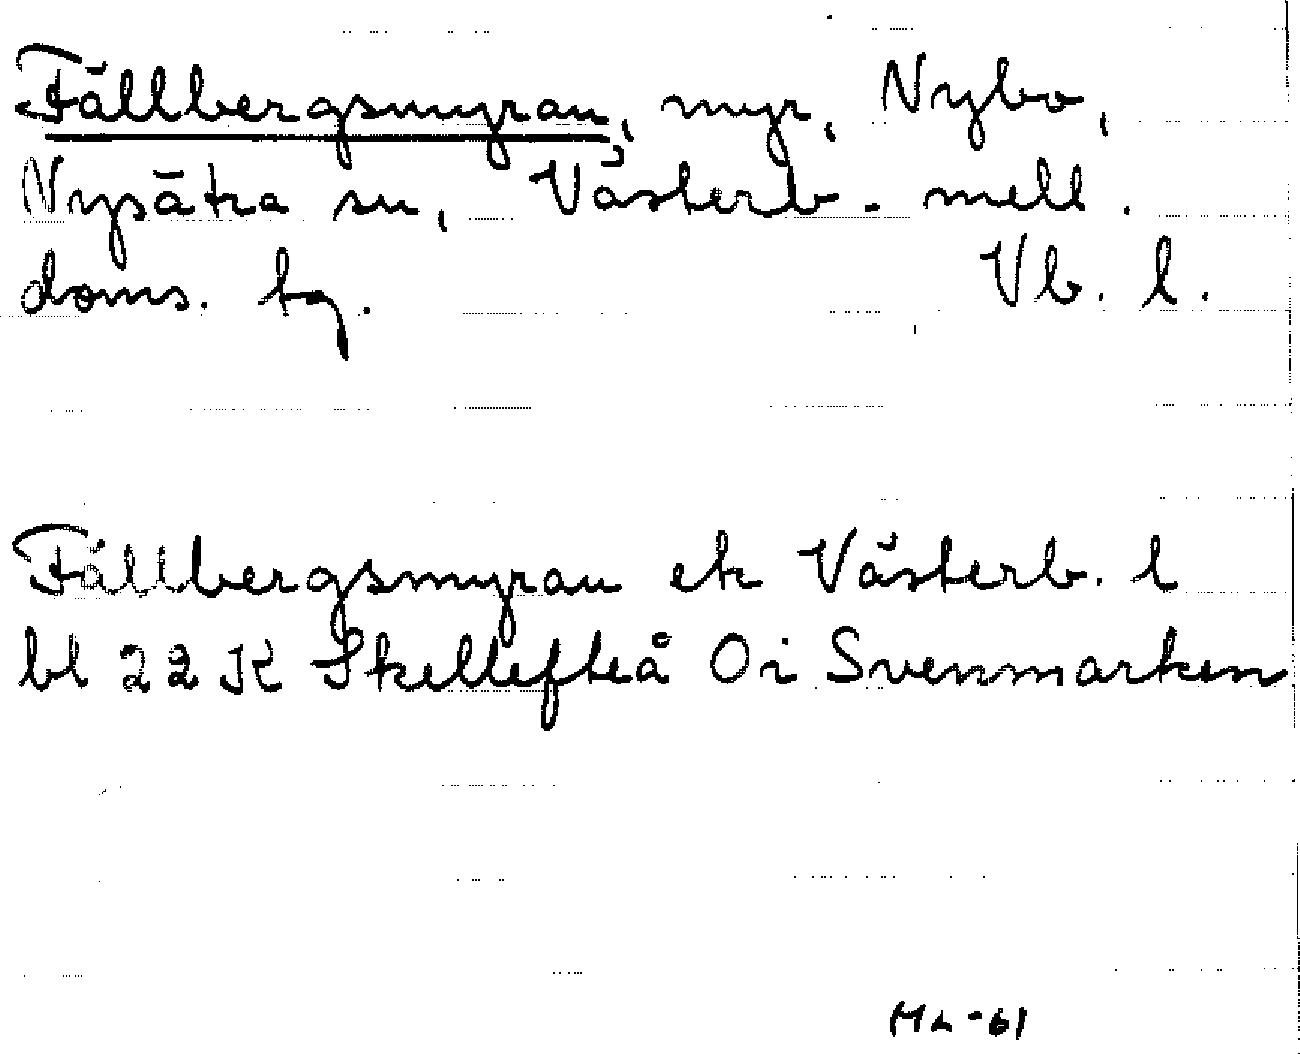 Fällbergsmyran, myr, Nybo,
Nysätra sn, Västerb. mell.
doms. bg. Vb. l.
Fällbergsmyran ek Västerb. l
bl 22 K Skellefteå Oi Svenmarken